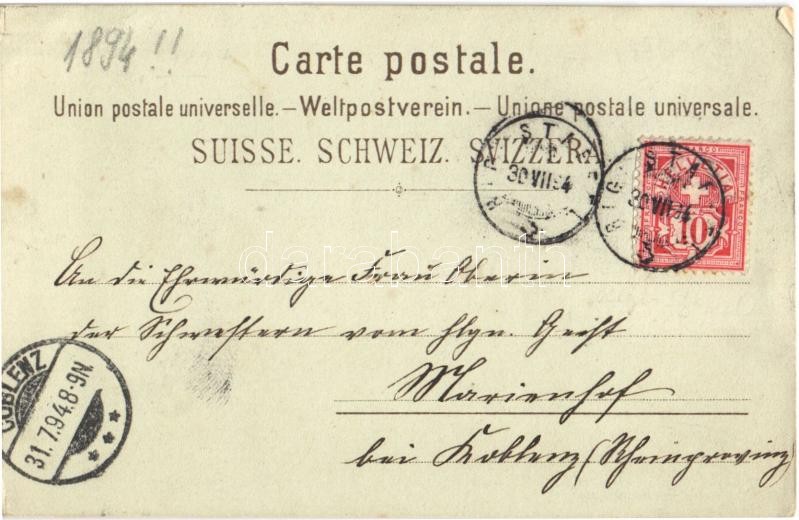 1894!!
Carte postale.
Union postale universelle. – Weltpostverein. – Unione postale universale.
SUISSE. SCHWEIZ. SVIZZERA.
30 VII 94
30 VII 94
10
An die Ehrwürdige Frau Oberin
der Schwestern vom hlgn. Geist
Marienhof
bei Koblenz (Rheinprovinz)
COBLENZ
31.7.94.8-9N.
darabanth